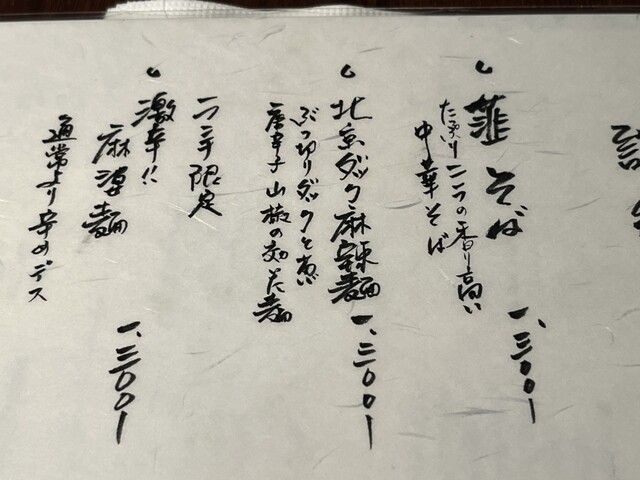 韮そば
たっぷりニラの香り高い
中華そば
一、三〇〇ー
北京ダック麻辣麺
ぶつ切りダックと
唐辛子山椒の効いた麺
一、三〇〇ー
ランチ限定
激辛!!
麻婆麺
通常より辛めデス
一、三〇〇ー